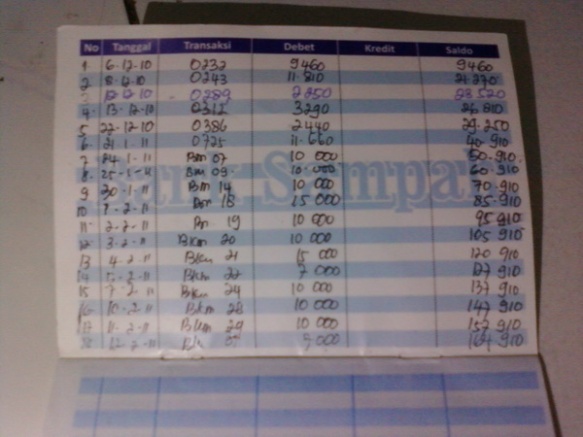 No Tanggal Transaksi Debet Kredit Saldo
1 6-12-10 0232 9460 9460
2 8-12-10 0243 11-810 21 270
0289 2250 23 520
4 13-12-10 0312 3290 26 810
5 22-12-10 0386 2440 29-250
6 21-1-11 0725 11-660 40-910
7 24-1-11 Bm 07 10 000 50-910
8 25-1-11 Bm 09 10-000 60-910
9 30-1-11 Bm 14 10 000 70-910
10 18 15 000 85-910
11 2-2-11 19 10 000 95 910
12 3-2-11 Bkm 20 10 000 105 910
13 4-2-11 Bkm 21 15 000 120 910
14 5-2-11 Bkm 22 7 000 127 910
15 7-2-11 Bkm 24 10 000 137 910
16 10-2-11 Bkm 28 10 000 147 910
17 11-2-11 Bkm 29 10 000 157 910
12-2-11 910
Bank Sampah